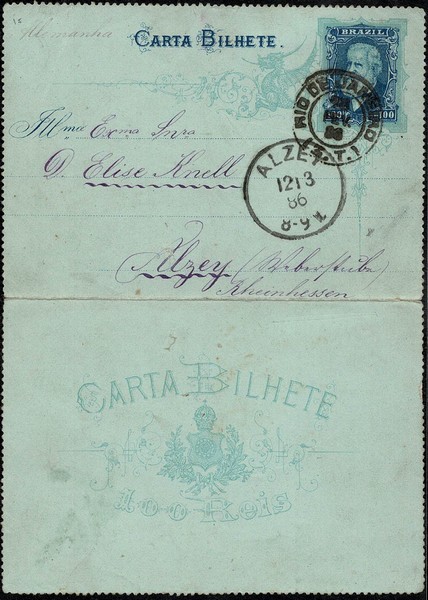 Allemanha
CARTA BILHETE.
BRAZIL
100
RIO DE JANEIRO
86
Illma Exma Snra
D. Elise Knell
ALZEY
12 3
86
8-9
Alzey (Weberstube)
Rheinhessen
CARTA BILHETE
100 Reis